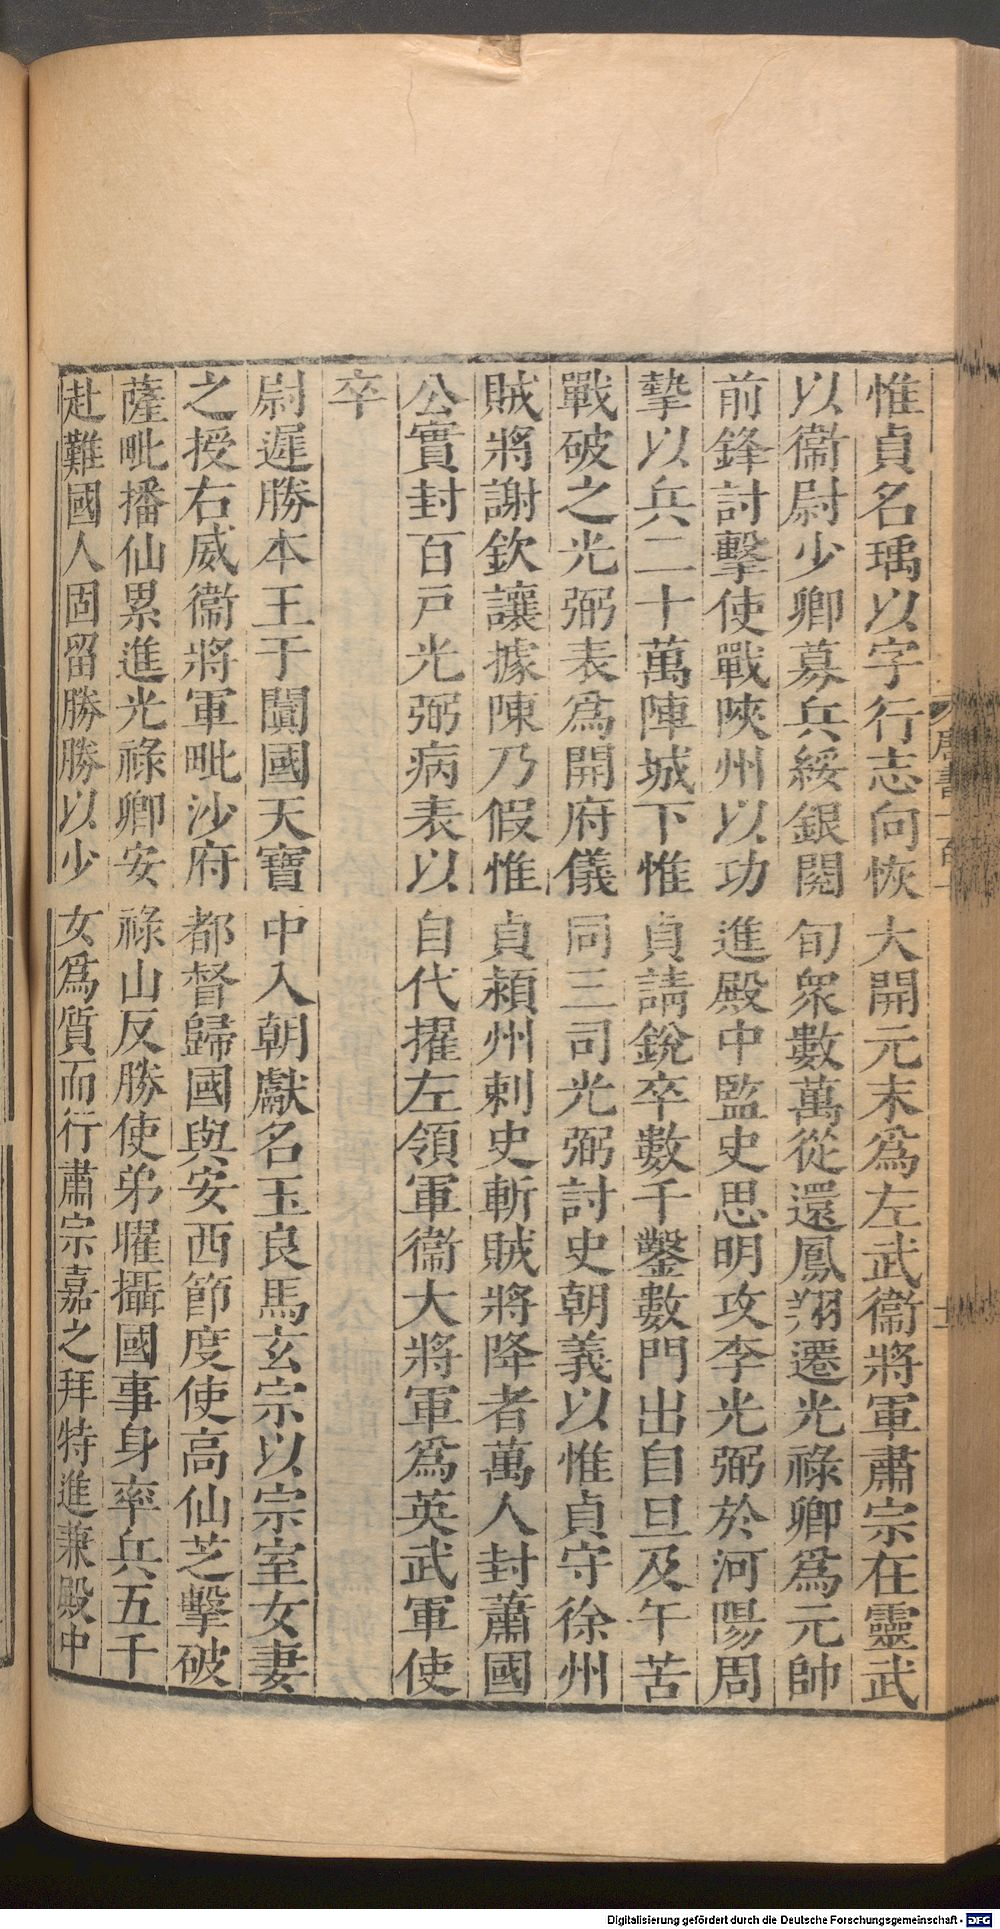 惟貞名瑀以字行志向恢大開元末爲左武衞將軍肅宗在靈武
以衞尉少卿募兵綏銀閱旬衆數萬從還鳳翔遷光祿卿爲元帥
前鋒討擊使戰陜州以功進殿中監史思明攻李光弼於河陽周
摯以兵二十萬陣城下惟貞請銳卒數千鑿數門出自旦及午苦
戰破之光弼表爲開府儀同三司光弼討史朝義以惟貞守徐州
賊將謝欽讓據陳乃假惟貞潁州刺史斬賊將降者萬人封蕭國
公實封百戸光弼病表以自代擢左領軍衞大將軍爲英武軍使
卒
尉遲勝本王于闐國天寶中入朝獻名玉良馬玄宗以宗室女妻
之授右威衞將軍毗沙府都督歸國與安西節度使高仙芝擊破
薩毗播仙累進光祿卿安祿山反勝使弟曜攝國事身率兵五千
赴難國人固留勝勝以少女爲質而行肅宗嘉之拜特進兼殿中
Digitalisierung gefördert durch die Deutsche Forschungsgemeinschaft - DFG